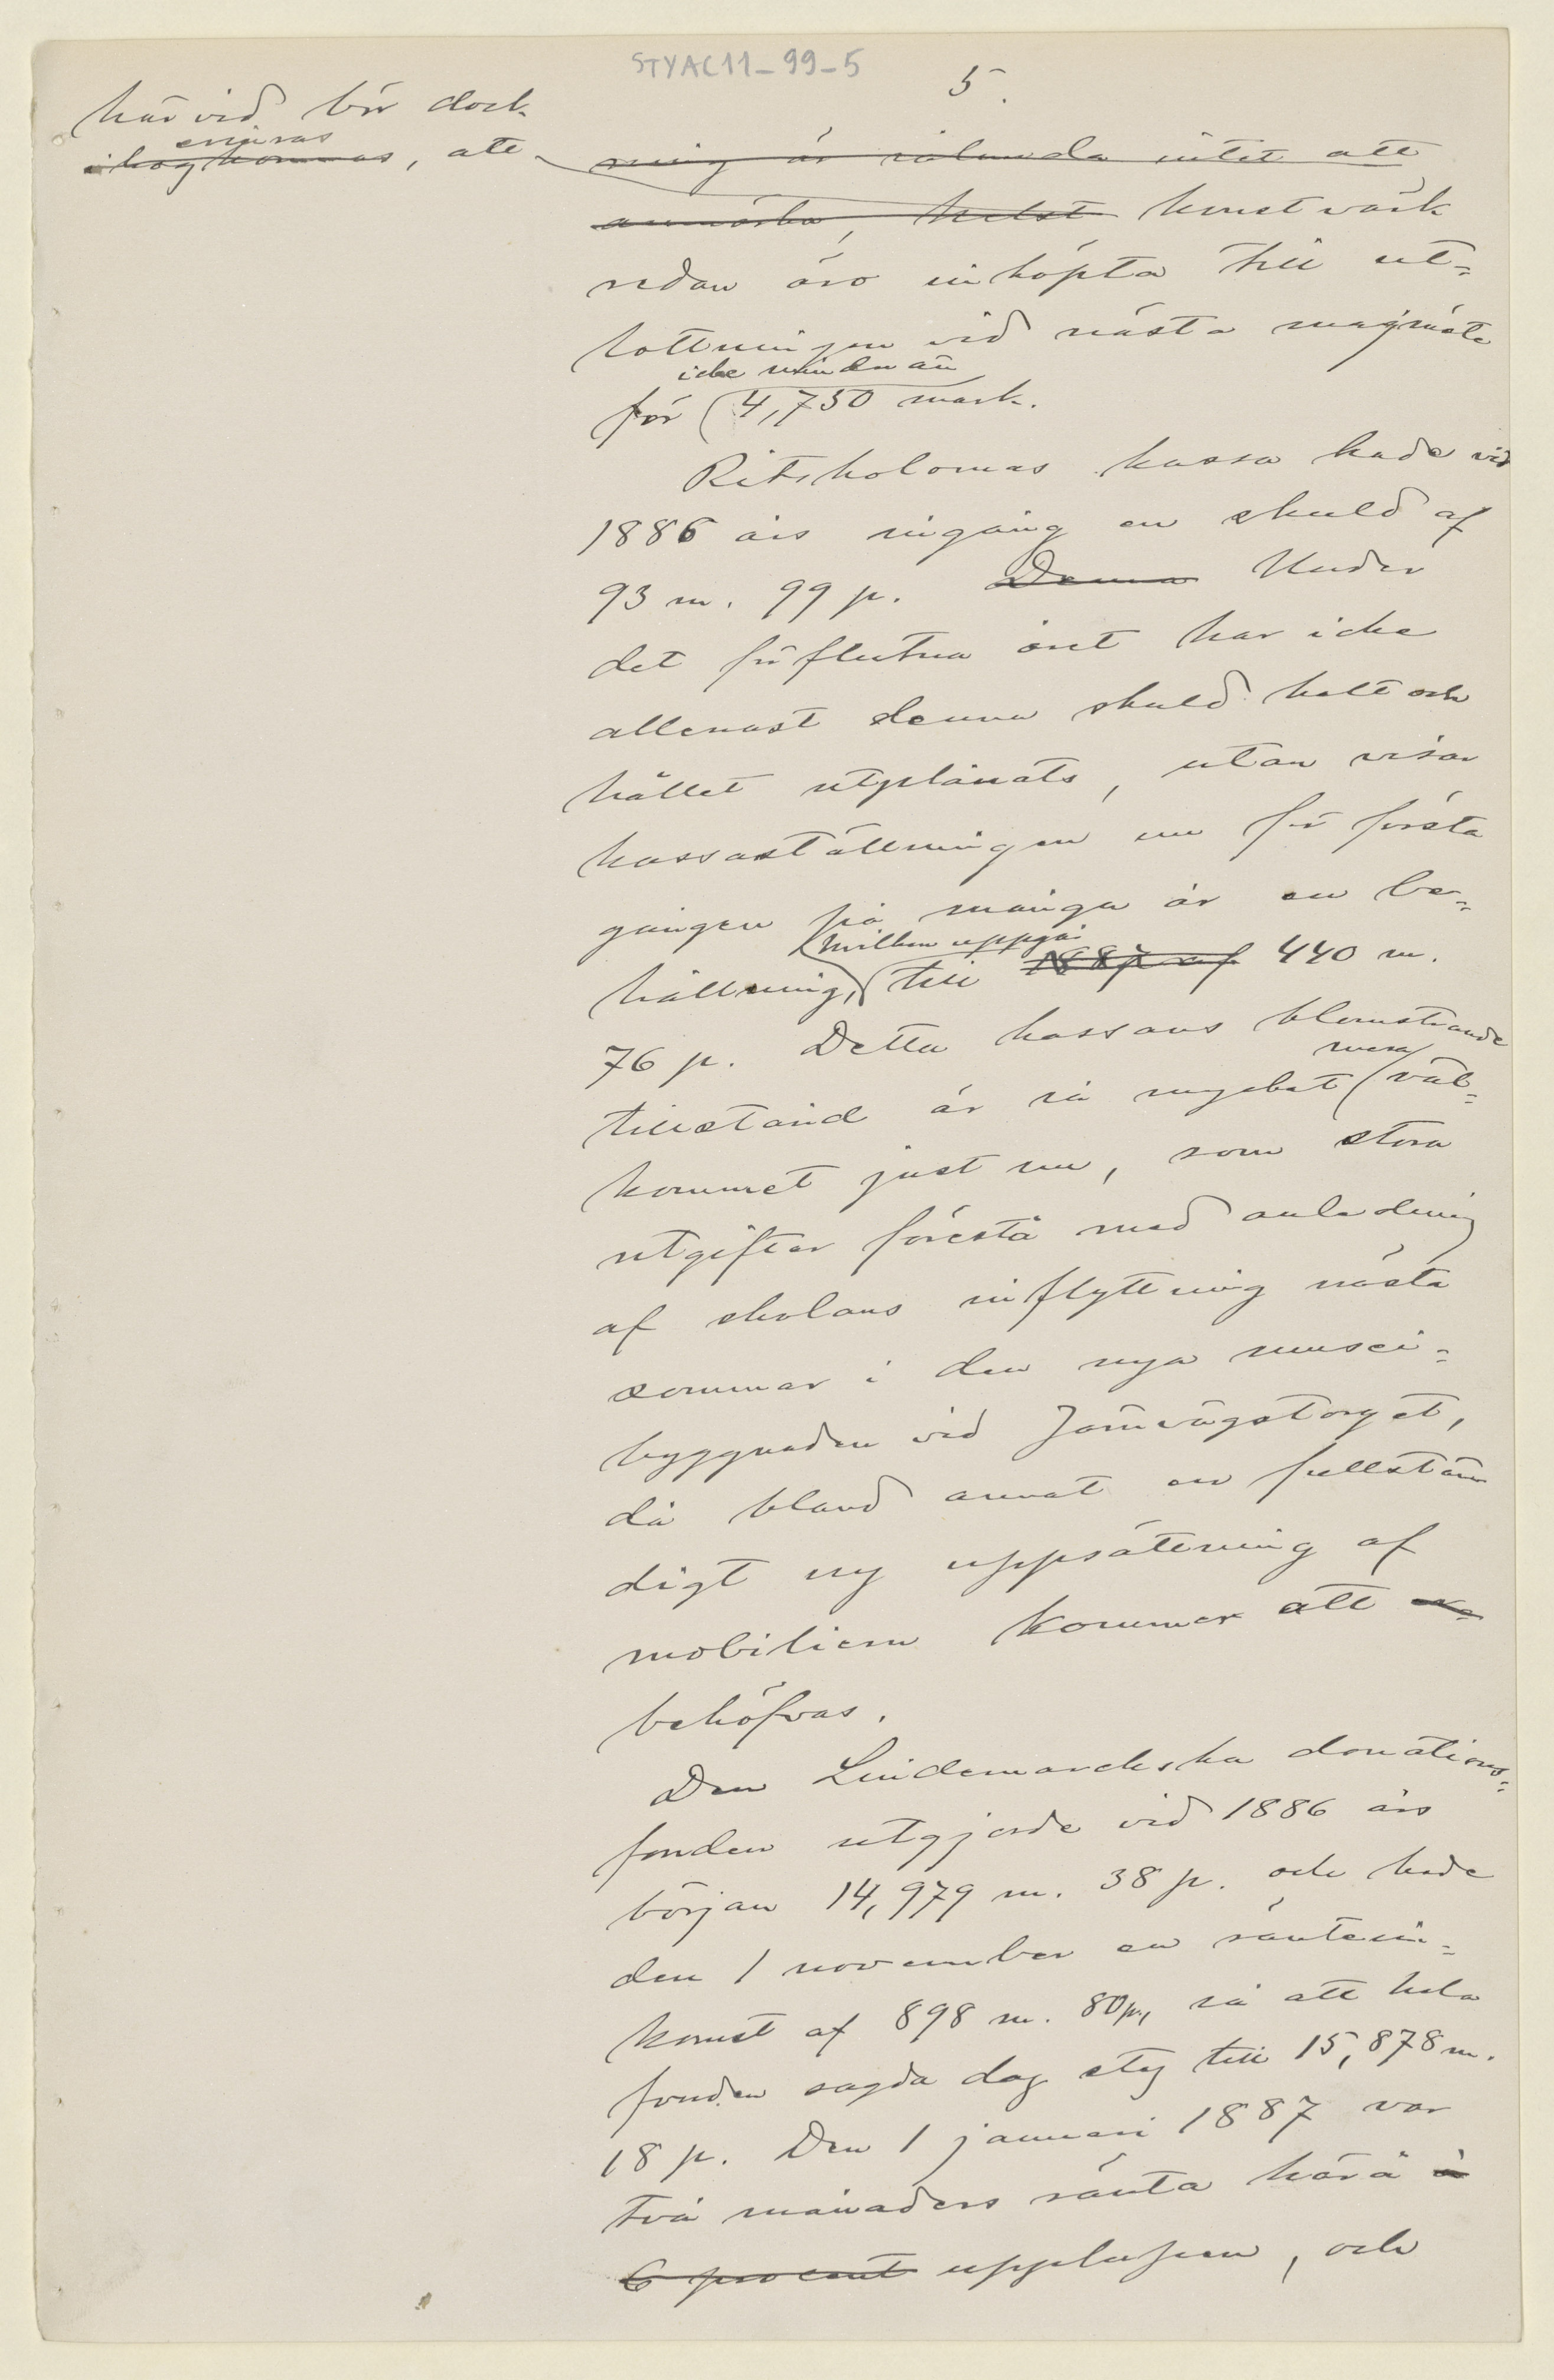 STYAC11-99-5
5.
härvid bör dock
erinras
ihågkommas, att
ning är sålunda intet att
anmärka, helst konstvärk
redan äro inköpta till ut-
lottningen vid nästa majmöte
icke mindre än
för 4,750 mark.
Ritskolornas kassa hade vid
1886 års ingång en skuld af
93 m. 99 p. Denna Under
det förflutna året har icke
allenast denna skuld helt och
hållet utplånats, utan visar
kassaställningen nu för första
gången på många år en be-
hvilken uppgår
hållning, till 1887 af 440 m.
76 p. Detta kassans blomstrande
mera
tillstånd är så mycket väl-
kommet just nu, som stora
utgifter förestå med anledning
af skolans inflyttning nästa
sommar i den nya musei-
byggnaden vid Järnvägstorget,
då bland annat en fullstän
digt ny uppsättning af
mobiliern kommer att
behöfvas.
Den Lindemarckska donations-
fonden utgjorde vid 1886 års
början 14,979 m. 38 p. och hade
den 1 november en räntein-
komst af 898 m. 80 p., så att hela
fonden sagda dag steg till 15,878 m.
18 p. Den 1 januari 1887 var
två månaders ränta härå à
6 procent upplupen, och